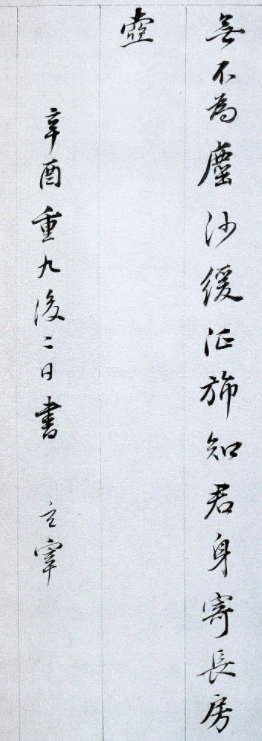 無不為塵沙緩征斾知君身寄長房
壺
辛酉重九後二日書 立宰